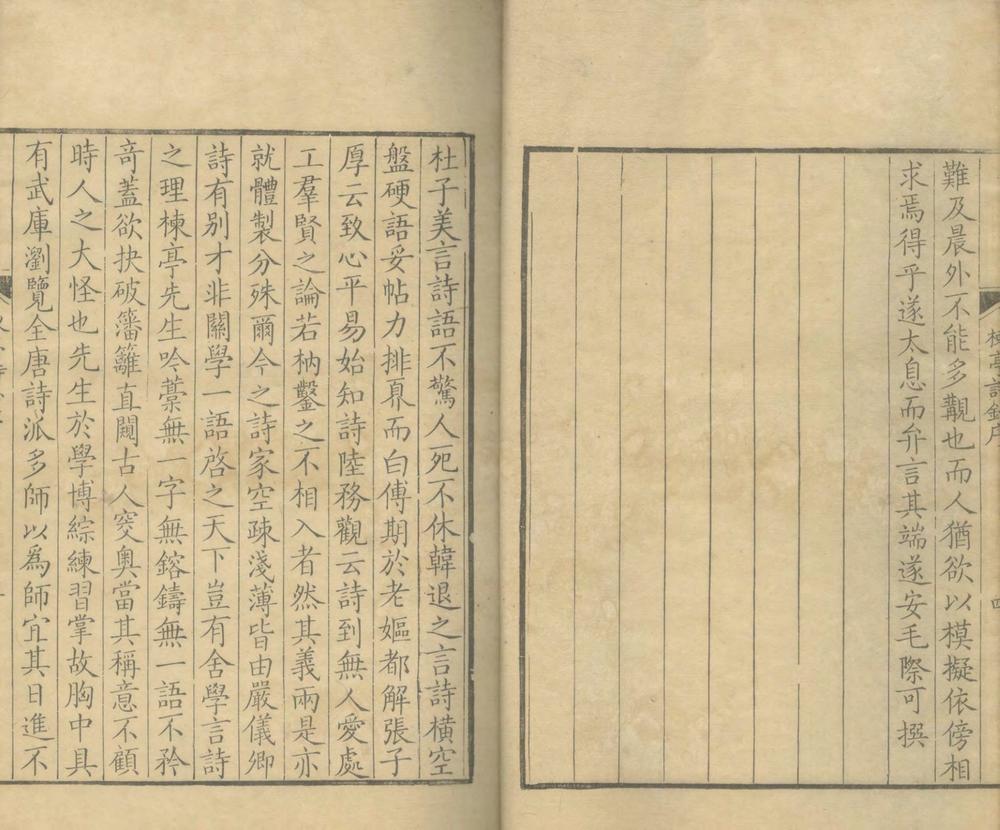 楝亭詩鈔序
四
難及晨外不能多觏也而人猶欲以模擬依傍相
求焉得乎遂太息而弁言其端遂安毛際可撰
杜子美言詩語不驚人死不休韓退之言詩橫空
盤硬語妥帖力排奡而白傅期於老嫗都解張子
厚云致心平易始知詩陸務觀云詩到無人愛處
工羣賢之論若枘鑿之不相入者然其義兩是亦
就體製分殊爾今之詩家空疎淺薄皆由嚴儀卿
詩有别才非關學一語啓之天下豈有舍學言詩
之理楝亭先生吟藳無一字無鎔鑄無一語不矜
竒蓋欲抉破籓籬直闖古人窔奧當其稱意不顧
時人之大怪也先生於學博綜練習掌故胸中具
有武庫瀏覽全唐詩派多師以爲師宜其日進不